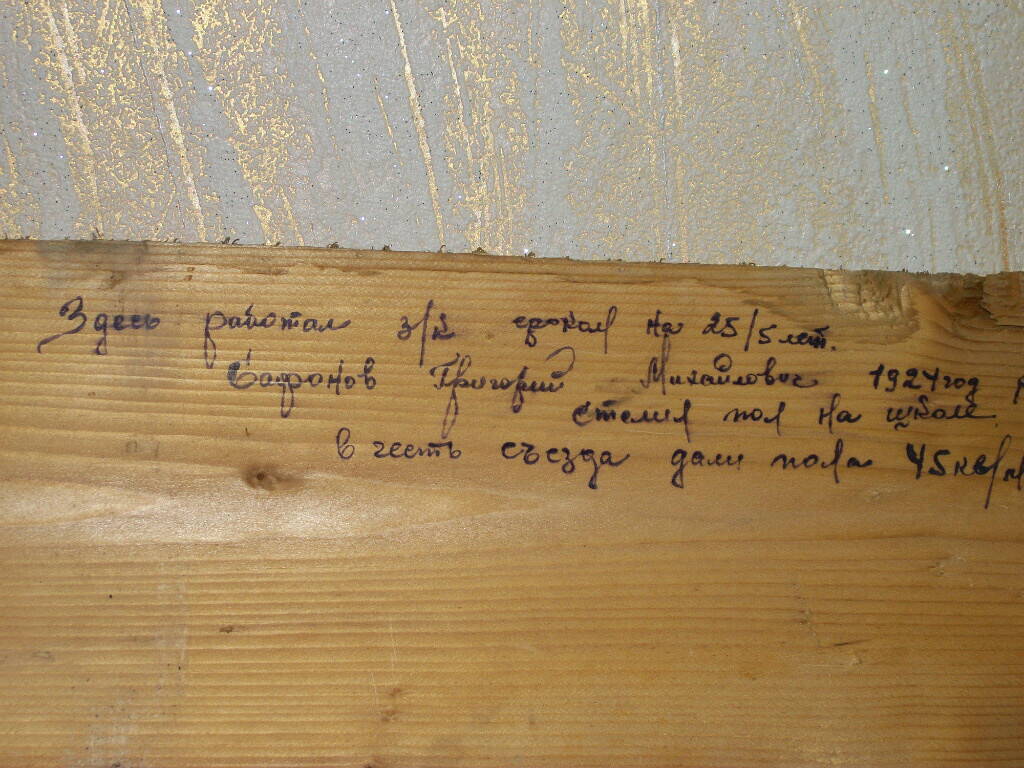 Здесь работал з/к сроком на 25/5 лет.
Сафонов Григорий Михайлович 1924 год р
стелил пол на школе.
в честь съезда дали пола 45 кв/м